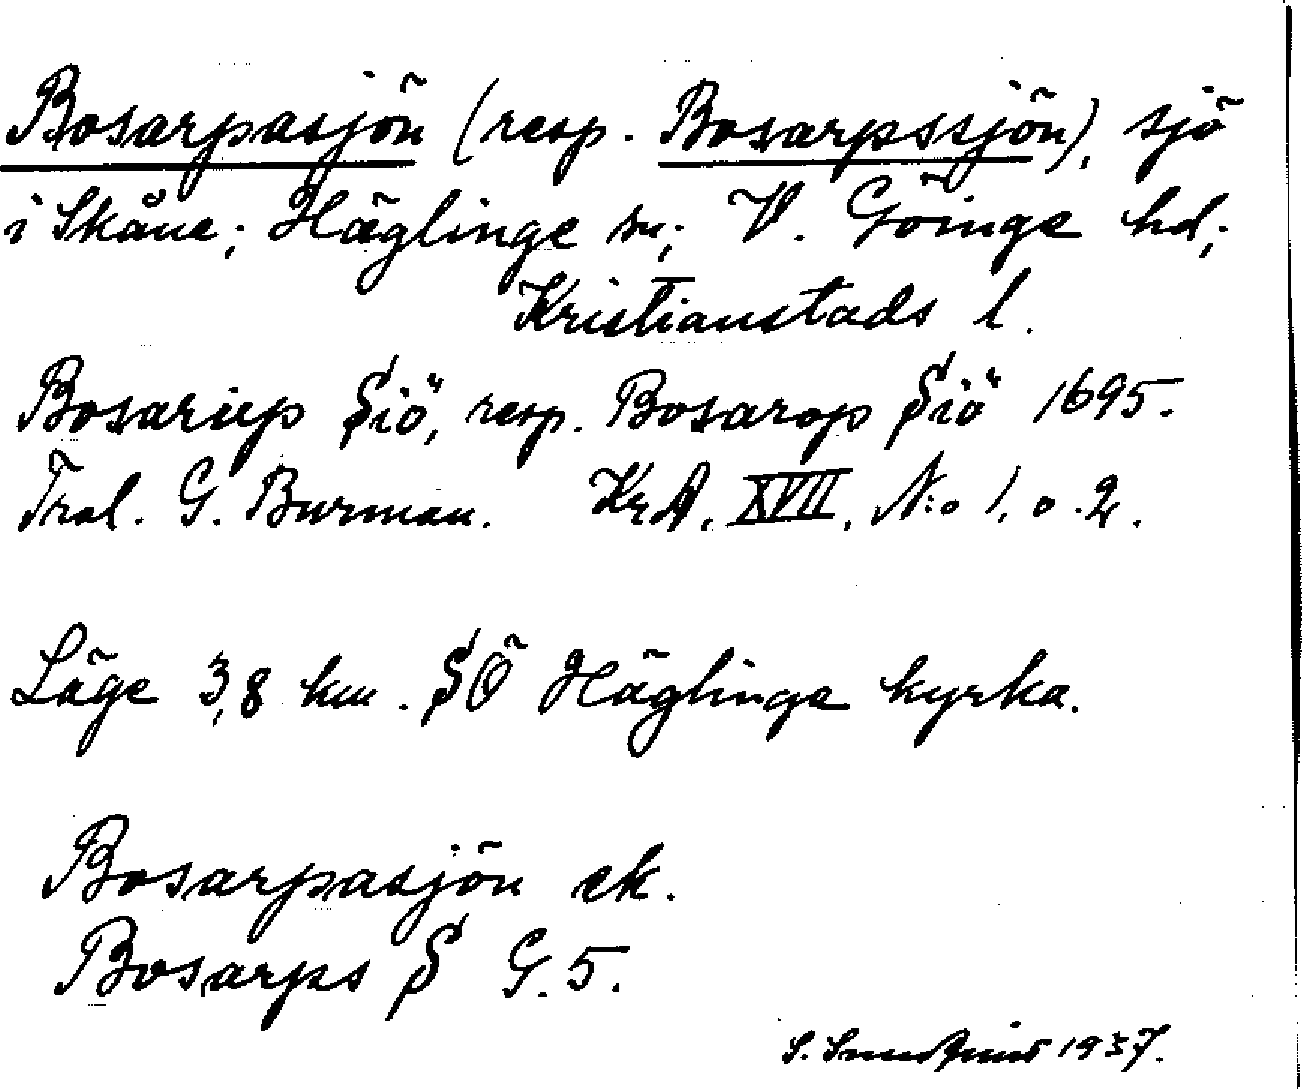 Bosarpasjön (resp. Bosarpssjön), sjö
i Skåne; Häglinge sn; V. Göinge hd;
Kristianstads l.
Bosariep Siö, resp. Bosarop Siö 1695.
G. Burman. KrA. XVII, N:o 1, o. 2.
Läge 3,8 km. SÖ Häglinge kyrka.
Bosarpasjön ek.
Bosarps S G. 5.
S. 1937.